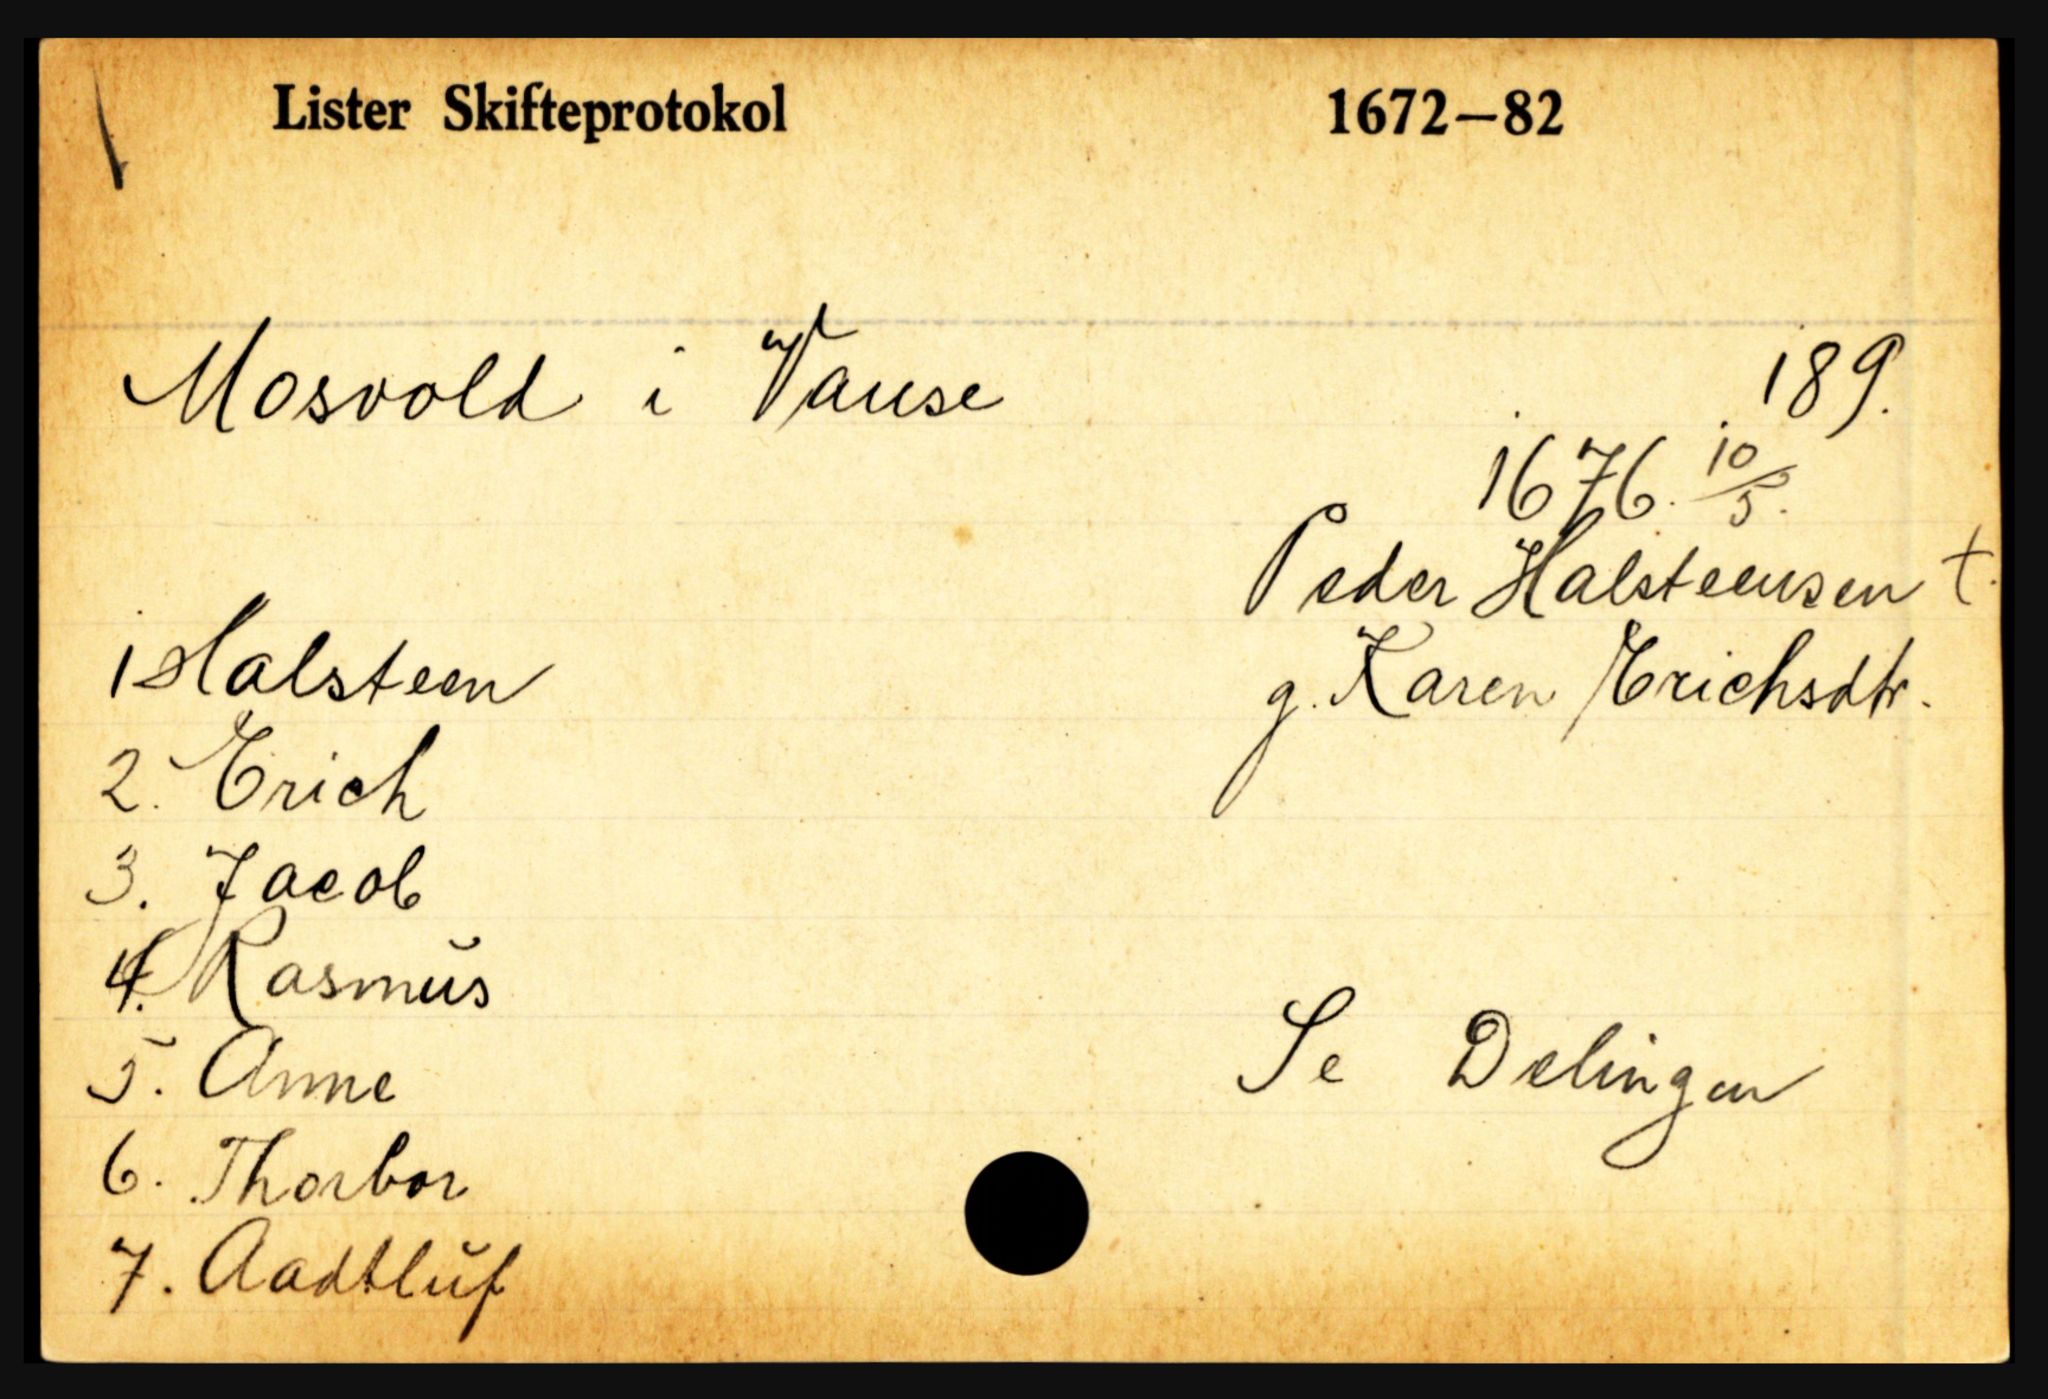 Lister Skifteprotokol 1672—82
Mosvold i Vanse 189.
1676. 10/5.
Peder Halsteensen †.
g. Karen Erichsdtr.
1 Halsteen
2. Erich
3. Jacob
4. Rasmus
5. Anne
6. Thorbor
7. Aadtluf
Se Delingen